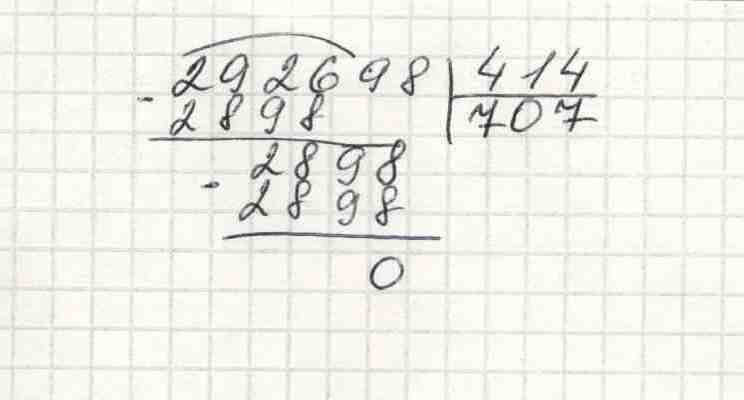 292698 414
- 2898 707
2898
- 2898
0